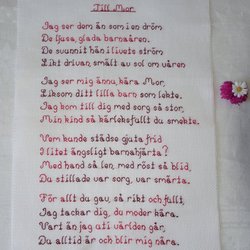 Till Mor
Jag ser dem än som i en dröm
De ljusa, glada barnaåren.
De svunnit hän i livets ström
Likt drivan, smält av sol om våren
Jag ser mig ännu, kära Mor,
Liksom ditt lilla barn som lekte.
Jag kom till dig med sorg så stor,
Min kind så kärleksfullt du smekte.
Vem kunde städse gjuta frid
I litet ängsligt barnahjärta?
Med hand så len, med röst så blid,
Du stillade var sorg, var smärta.
För allt du gav, så rikt och fullt,
Jag tackar dig, du moder kära.
Vart än jag uti världen går,
Du alltid är och blir mig nära.